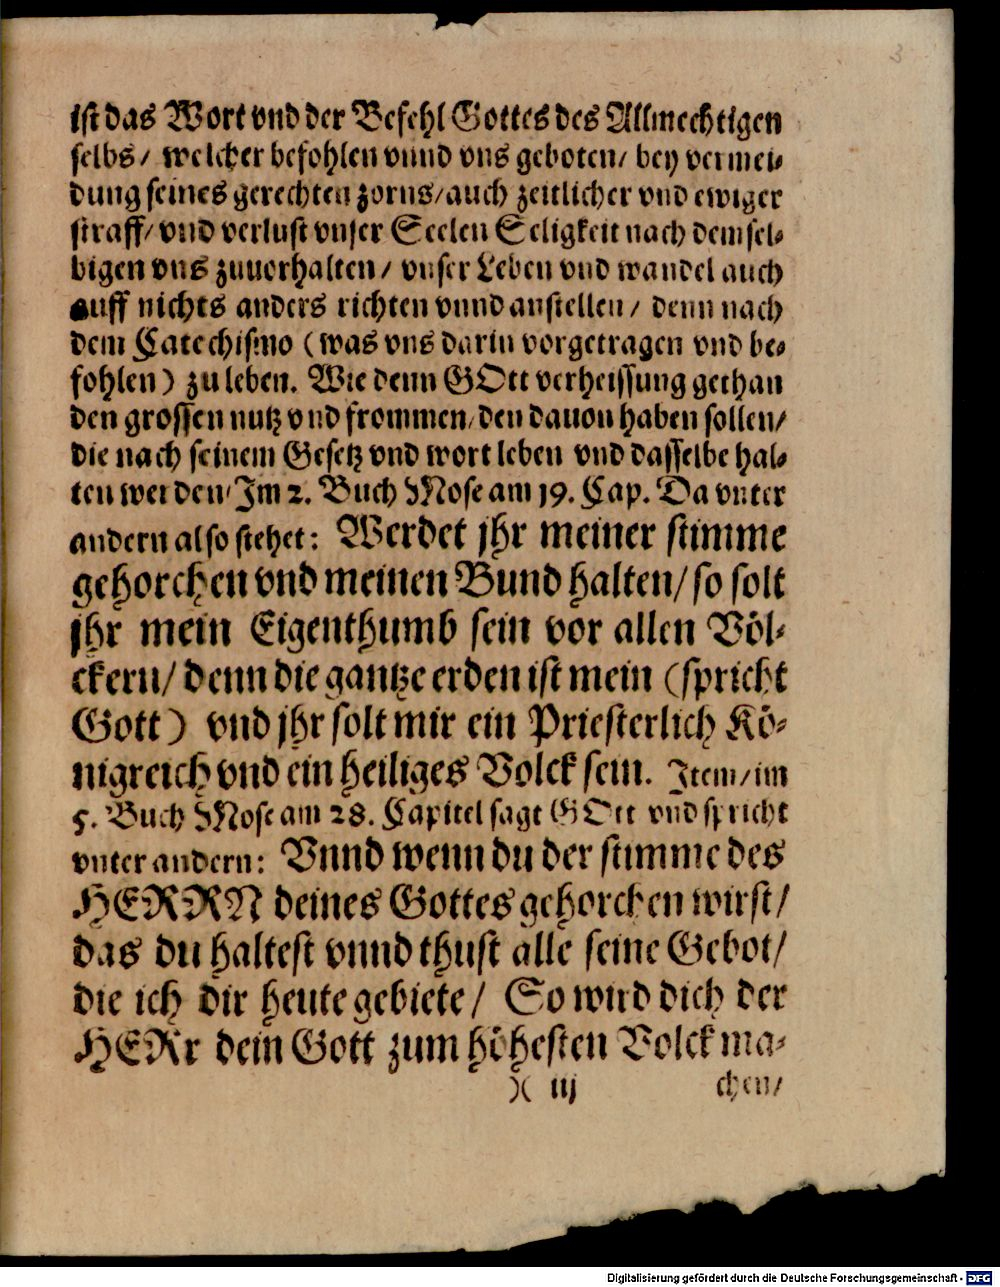 3
ist das Wort vnd der Befehl Gottes des Allmechtigen
selbs / welcher befohlen vnnd vns geboten / bey vermei-
dung seines gerechten zorns / auch zeitlicher vnd ewiger
straff / vnd verlust vnser Seelen Seligkeit nach demsel-
bigen vns zuuorhalten / vnser Leben vnd wandel auch
auff nichts anders richten vnnd anstellen / denn nach
dem Catechismo (was vns darin vorgetragen vnd be-
fohlen) zu leben. Wie denn GOtt verheissung gethan
den grossen nutz vnd frommen / den dauon haben sollen /
die nach seinem Gesetz vnd wort leben vnd dasselbe hal-
ten werden / Im 2. Buch Mose am 19. Cap. Da vnter
andern also stehet: Werdet jhr meiner stimme
gehorchen vnd meinen Bund halten / so solt
jhr mein Eigenthumb sein vor allen Völ-
ckern / denn die gantze erden ist mein (spricht
Gott) vnd jhr solt mir ein Priesterlich Kö-
nigreich vnd ein heiliges Volck sein. Item / im
5. Buch Mose am 28. Capitel sagt GOtt vnd spricht
vnter andern: Vnnd wenn du der stimme des
HERRN deines Gottes gehorchen wirst /
das du haltest vnnd thust alle seine Gebot /
die ich dir heute gebiete / So wird dich der
HERr dein Gott zum höhesten Volck ma-
)( iij chen /
Digitalisierung gefördert durch die Deutsche Forschungsgemeinschaft - DFG